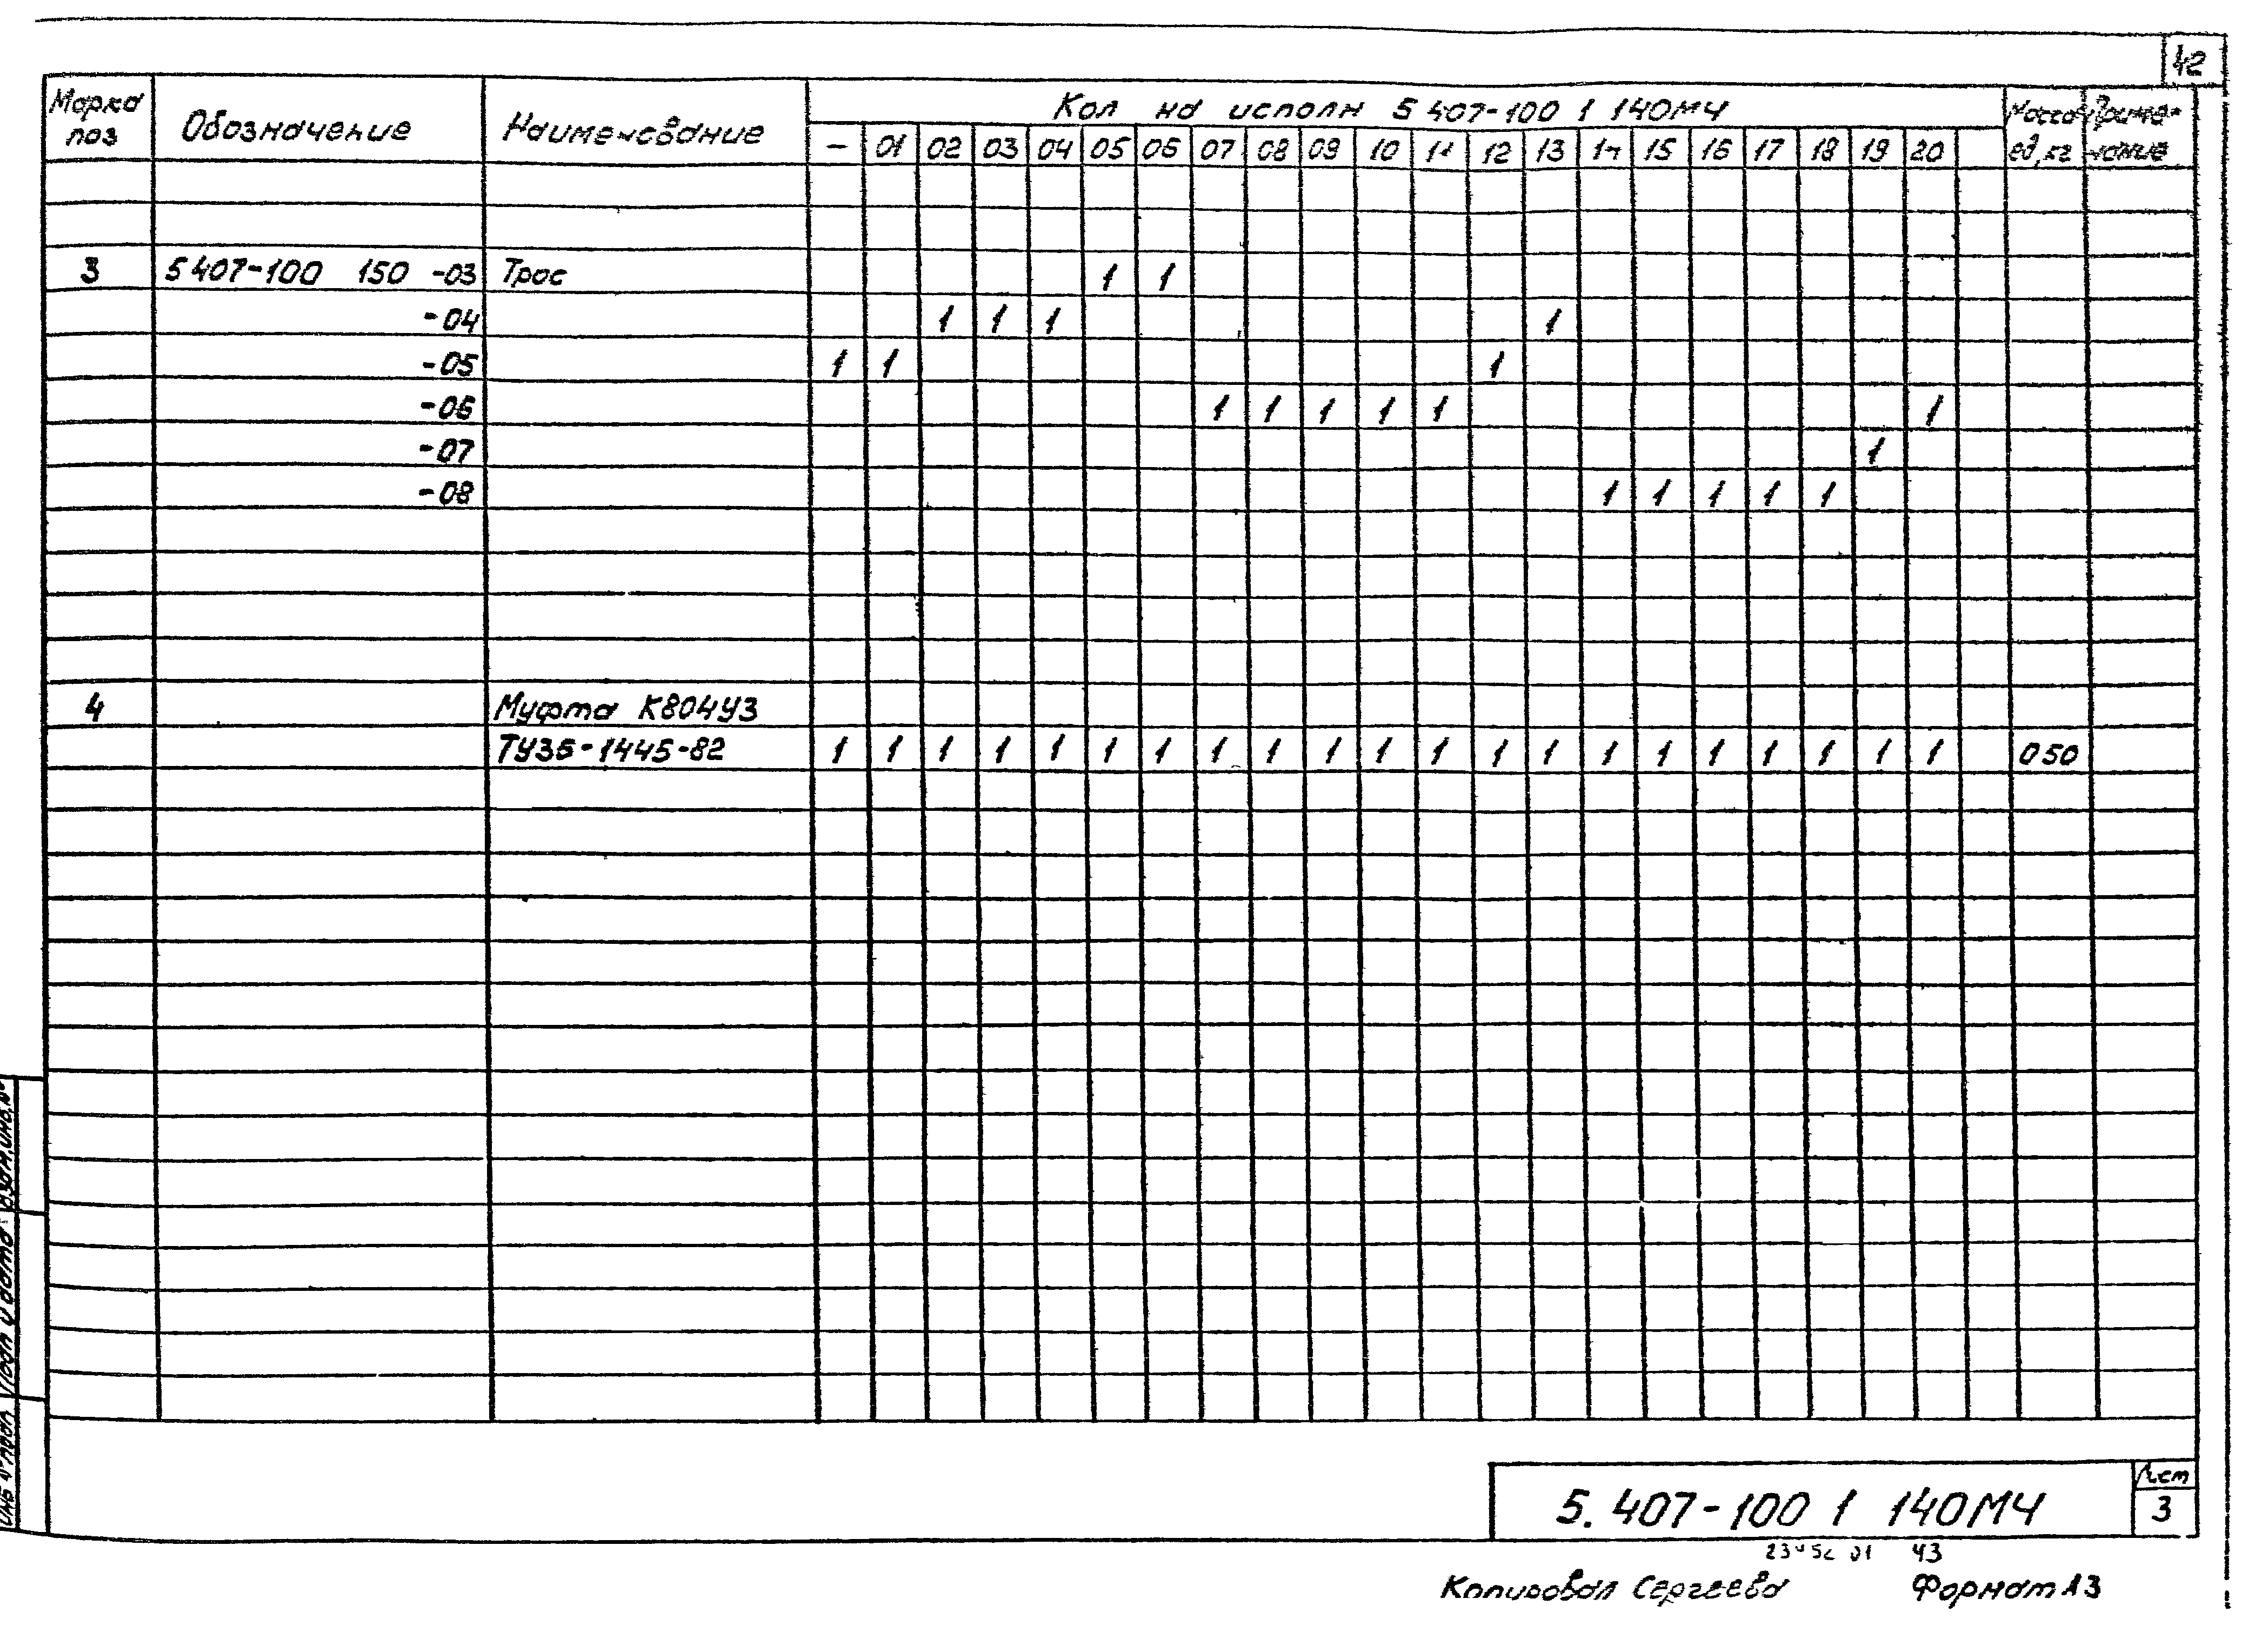 42
Марка поз Обозначение Наименование Кол на исполн 5 407-100 1 140МЧ Масса ед, кг Приме-чание
— 01 02 03 04 05 06 07 08 09 10 11 12 13 14 15 16 17 18 19 20
3 5 407-100 150 -03 Трос 1 1
-04 1 1 1 1
-05 1 1 1
-06 1 1 1 1 1 1
-07 1
-08 1 1 1 1 1
4 Муфта К804У3
ТУ36-1445-82 1 1 1 1 1 1 1 1 1 1 1 1 1 1 1 1 1 1 1 1 1 0 50
Взам. инв. №
Подп и дата
Инв № подл
5. 407-100 1 140МЧ
Лист
3
23452 01 43
Копировал Сергеева Формат А3